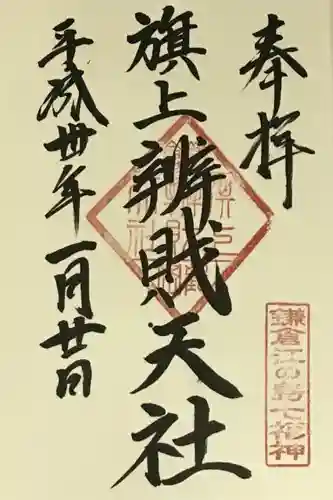 奉拝
鎌倉江の島七福神
旗上辨財天社
平成卅年一月廿日